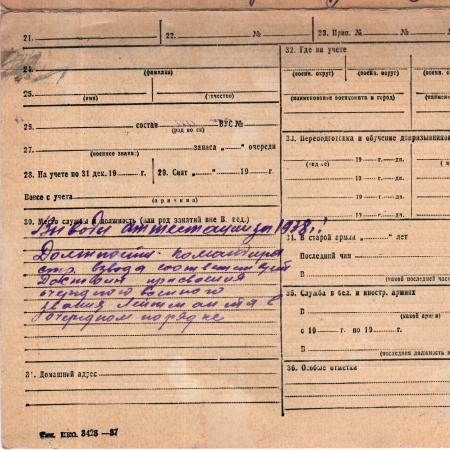 21. 22. № 23. Прип. № №
24.
(фамилия)
25.
(имя) (отчество)
26. состав ВУС №
(род войск)
27. запаса „ “ очереди
(военное звание)
28. На учете по 31 дек. 19 г. 29. Снят „ “ 19 г.
Взосе с учета
(причина)
30. Место службы и должность (или род занятий вне В. вед.)
Выводы аттестации за 1938 г.:
Должности командира
стр. взвода соответствует
Достоин присвоения
очередного военного
звания Лейтенанта в
очередном порядке
31. Домашний адрес
Тип. НКО. 3428 —37
32. Где на учете
(военн. округ) (военн. округ)
(наименование военкомата и город) (наименование
33. Переподготовка и обучение допризывников
19 г. дн. 19
19 г. дн. 19
19 г. дн. 19
В старой армии „ “ лет
Последний чин В
(какой последней час
35. Служба в бел. и иностр. армиях
В
(какой армии)
с 19 г. по 19 г.
В
(последняя должность и
36. Особые отметки